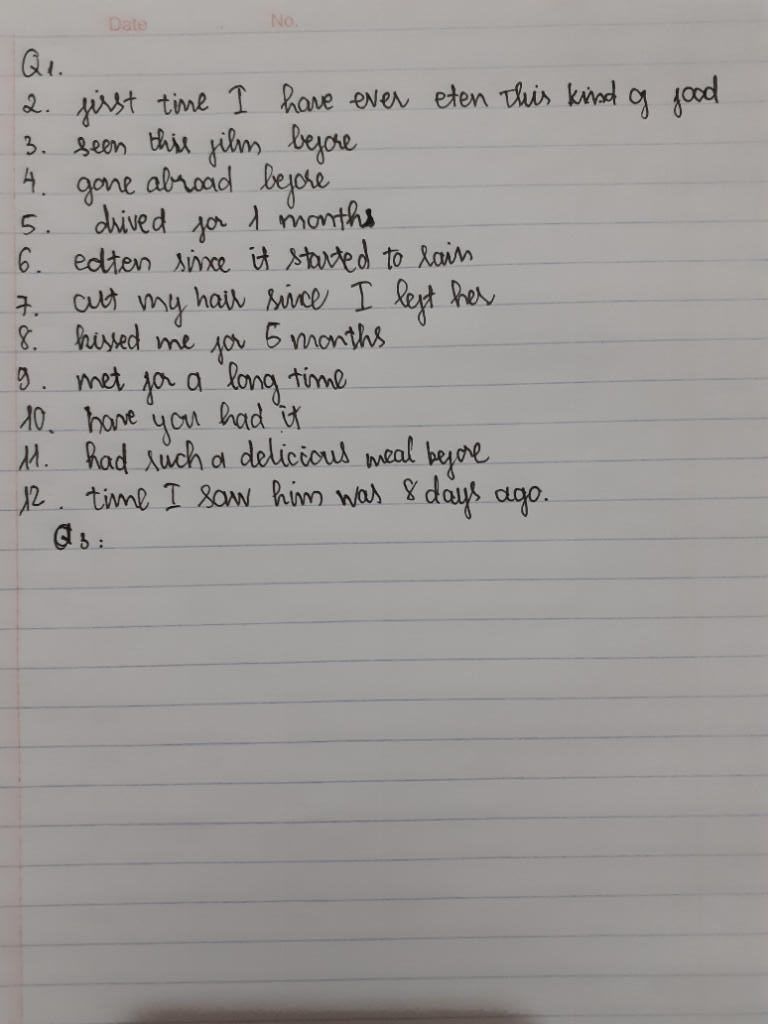 Date No.
Q1.
2. first time I have ever eten this kind of food
3. seen this film before
4. gone abroad before
5. drived for 1 months
6. edten since it started to rain
7. cut my hair since I left her
8. kissed me for 5 months
9. met for a long time
10. have you had it
11. had such a delicious meal before
12. time I saw him was 8 days ago.
Q3: